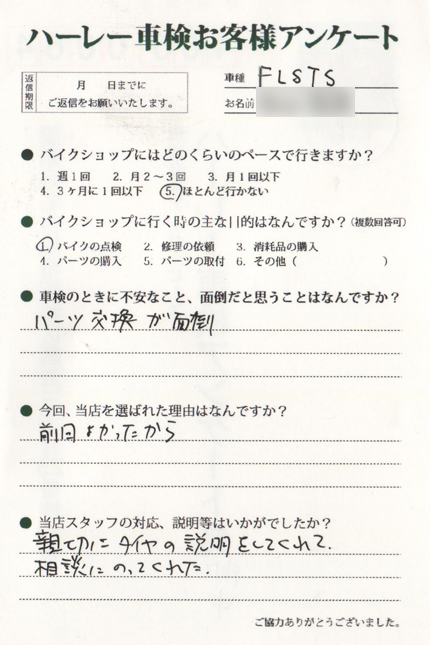 ハーレー車検お客様アンケート
返信期限
月 日までに
ご返信をお願いいたします。
車種 FLSTS
お名前
● バイクショップにはどのくらいのペースで行きますか?
1. 週1回 2. 月2〜3回 3. 月1回以下
4. 3ヶ月に1回以下 5. ほとんど行かない
● バイクショップに行く時の主な目的はなんですか?(複数回答可)
1. バイクの点検 2. 修理の依頼 3. 消耗品の購入
4. パーツの購入 5. パーツの取付 6. その他( )
● 車検のときに不安なこと、面倒だと思うことはなんですか?
パーツ交換が面倒
● 今回、当店を選ばれた理由はなんですか?
前回よかったから
● 当店スタッフの対応、説明等はいかがでしたか?
親切にタイヤの説明をしてくれて.
相談にのってくれた.
ご協力ありがとうございました。